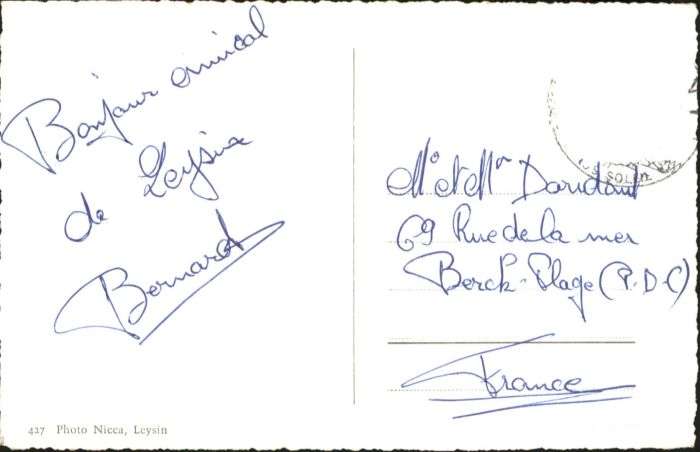 Bonjour amical
de Leysin
Bernard
Me et Mr Daridant
69 Rue de la mer
Berck-Plage (P.D.C)
France
427 Photo Nicca, Leysin
SOLEIL